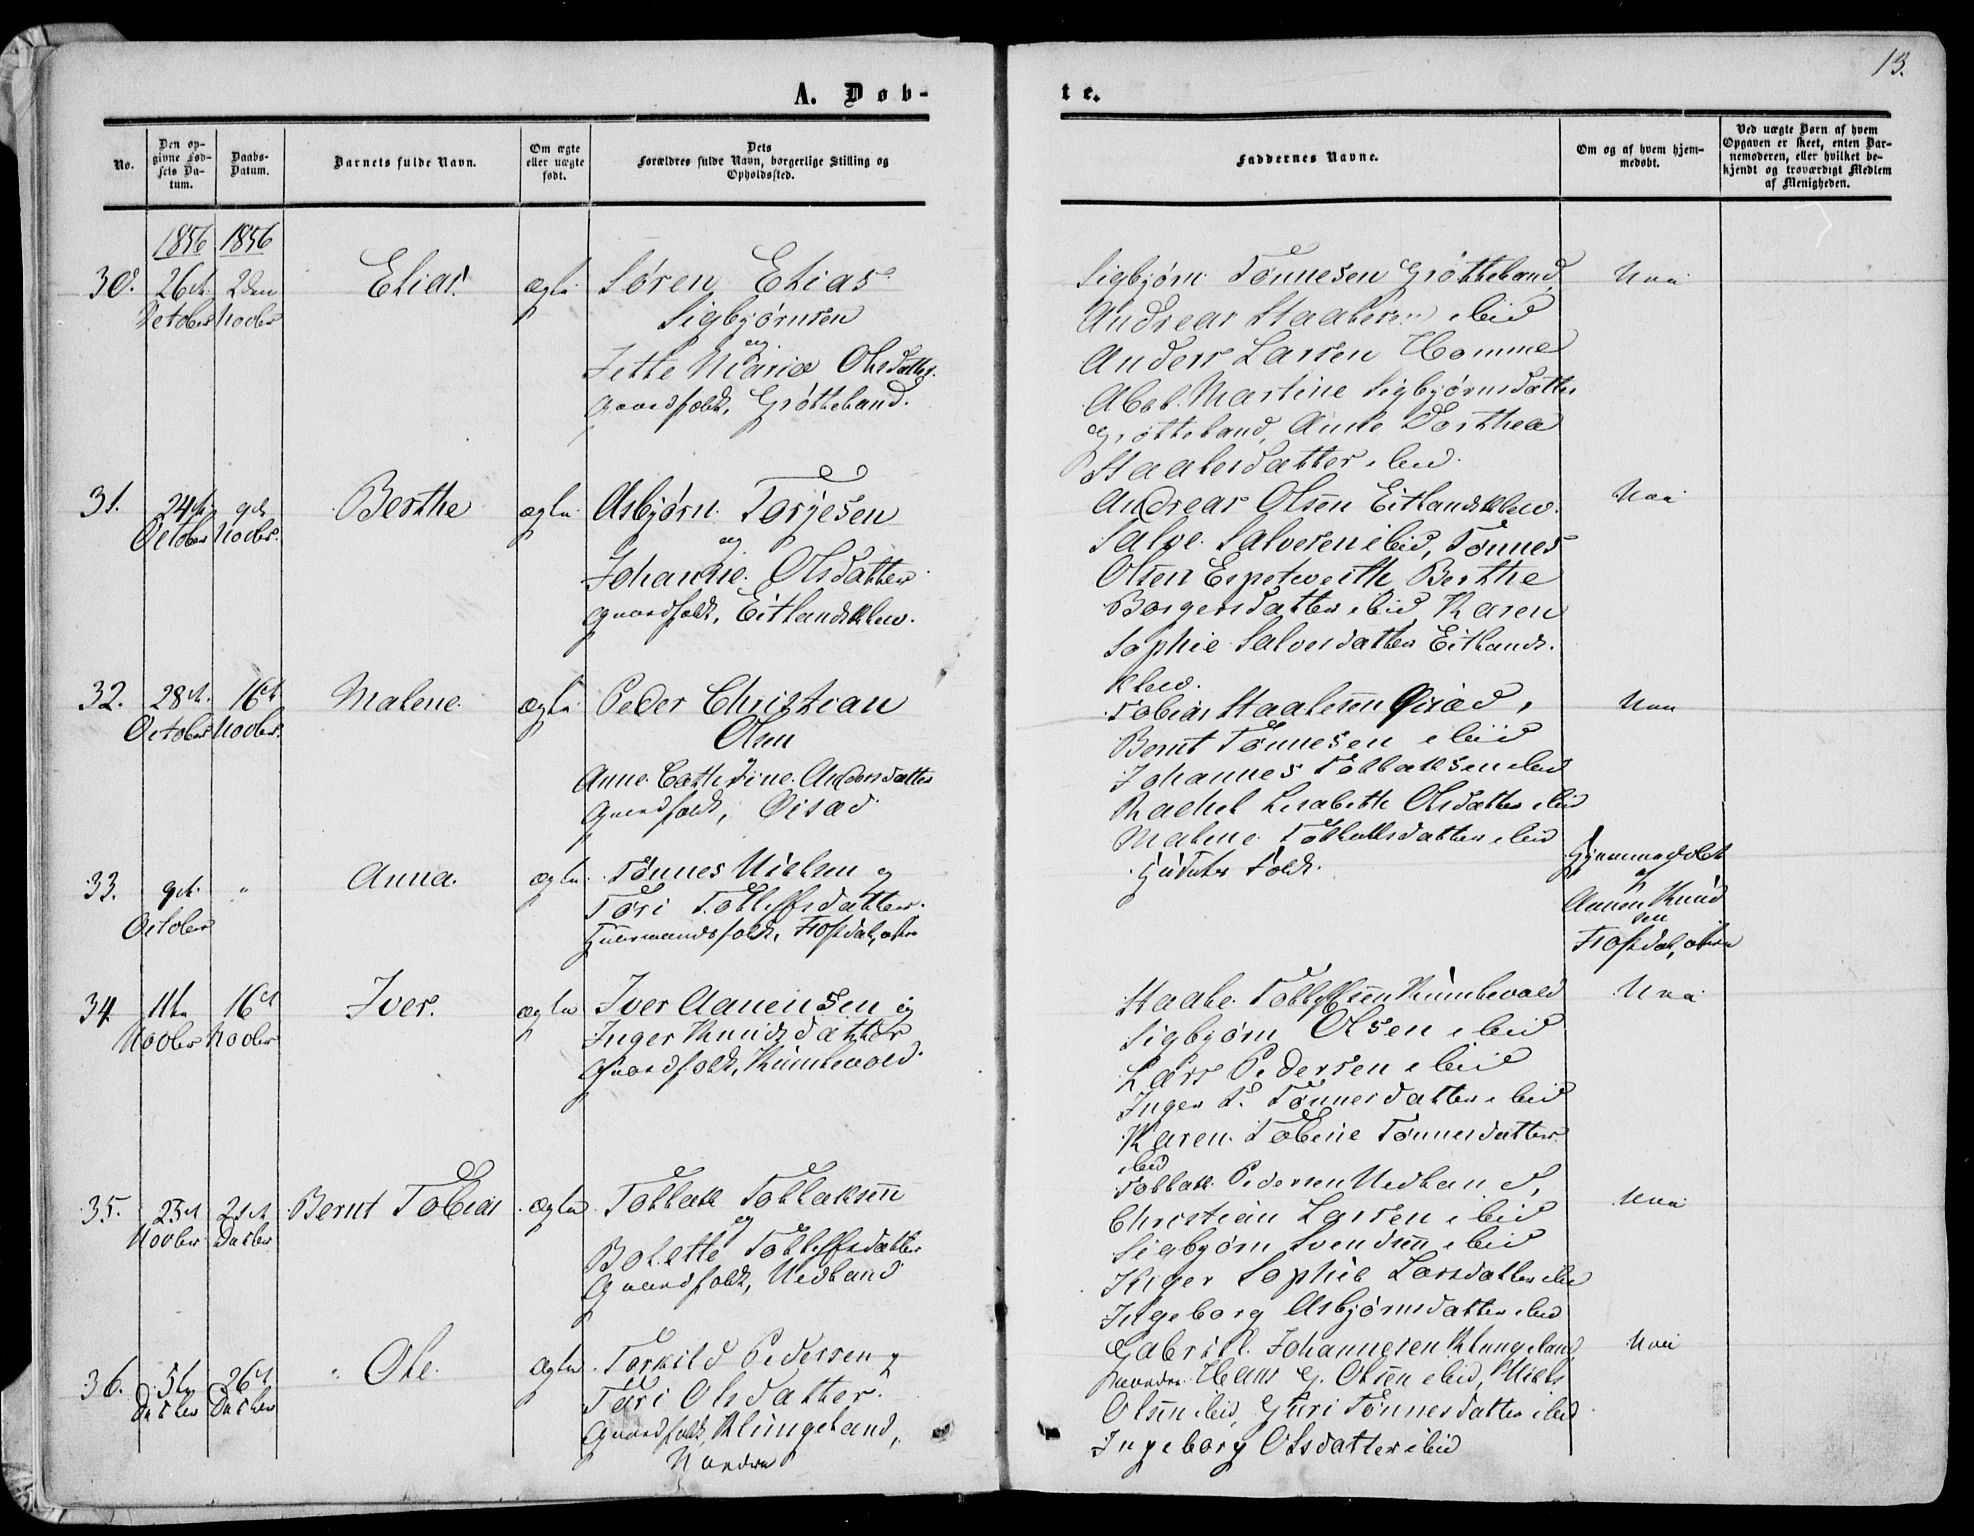 13.
A. Døb-
te.
No.
Den op-
givne Fød-
sels Da-
tum.
Daabs-
Datum.
Barnets fulde Navn.
Om ægte
eller uægte
født.
Dets
Forældres fulde Navn, borgerlige Stilling og
Opholdssted.
Faddernes Navne.
Om og af hvem hjem-
medøbt.
Ved uægte Børn af hvem
Opgaven er skeet, enten Bar-
nemoderen, eller hvilket be-
kjendt og troværdigt Medlem
af Menigheden.
1856 1856
30. 26de 2den Elias. ægte Søren Elias
October Novber Sigbjørnsen
og
Jette Marie Olsdatter
Gaardfolk, Grøtteland.
Sigbjørn Tønnesen Grøtteland,
Andreas Staalesen ibid
Anders Larsen Homme
Abel Martine Sigbjørnsdatter
Grøtteland, Anne Dorthea
Staalesdatter ibid.
Nei
31. 24de 9de Berthe ægte Asbjørn Torjesen
October Novber. og
Johanne Olsdatter
Gaardfolk, Eitlandsklev.
Andreas Olsen Eitlandsklev.
Salve Salvesen ibid, Tønnes
Olsen Espetveith, Berthe
Borgersdatter ibid, Karen
Sophie Salvesdatter Eitlands-
klev.
Nei
32. 28de 16de Malene ægte Peder Christian
October Novber. Olsen
Anne Cathrine Andersdatter
Gaardfolk, Øisæd
Tobias Staalesen Øisæd,
Bernt Tønnesen ibid
Johannes Tollaksen ibid
Rachel Lisabeth Olsdatter ibid
Malene Tollaksdatter ibid
Nei
33. 9de " Anna. ægte Tønnes Nielsen og
October Tøri Tollefsdatter
Huusmandsfolk, Flostdal, øvre
Hjemmedøbt
af
Aanen Knud
sen
Flostdal, øvre
34. 11te 16de Iver. ægte Iver Aanensen og
Novber Novber Inger Knudsdatter
Gaardfolk, Kumlevold.
Staale Tollefsen Kumlevold
Sigbjørn Olsen ibid
Lars Pedersen ibid
Inger T. Tønnesdatter ibid
Karen Tobine Tønnesdatter
ibid
Nei
35. 23de 21de Bernt Tobias ægte Tollak Tollaksen
Novber Decber og
Bolette Tollefsdatter
Gaardfolk, Nedland
Tollak Pedersen Nedland,
Christian Larsen ibid
Sigbjørn Svendsen ibid
Inger Sophie Larsdatter ibid
Ingeborg Asbjørnsdatter ibid
Nei
36. 5te 26de Ole ægte Torkild Pedersen og
Decber Decber Turi Olsdatter
Gaardfolk, Klungeland,
Nordre
Gabriel Johannesen Klungeland
Nordre Hans G. Olsen ibid, Niels
Olsen ibid, Guri Tønnesdatter ibid
Ingeborg Olsdatter ibid
Nei